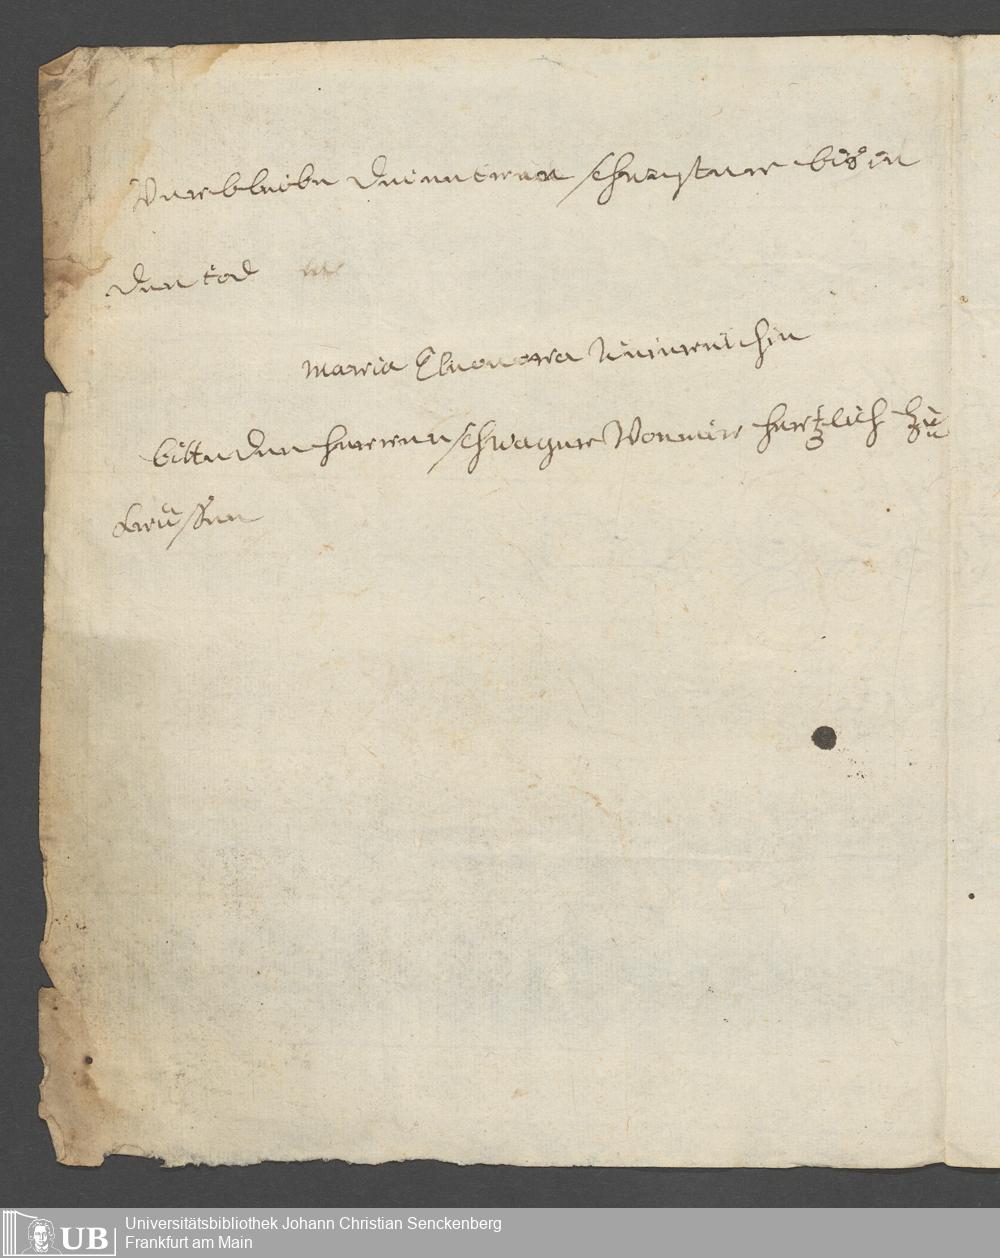 Verbleibe deine trewe schwester bis in
den tod
Maria Elleonora
bitte den herren schwager Von mir hertzlich zu
Grüssen
UB Universitätsbibliothek Johann Christian Senckenberg
Frankfurt am Main